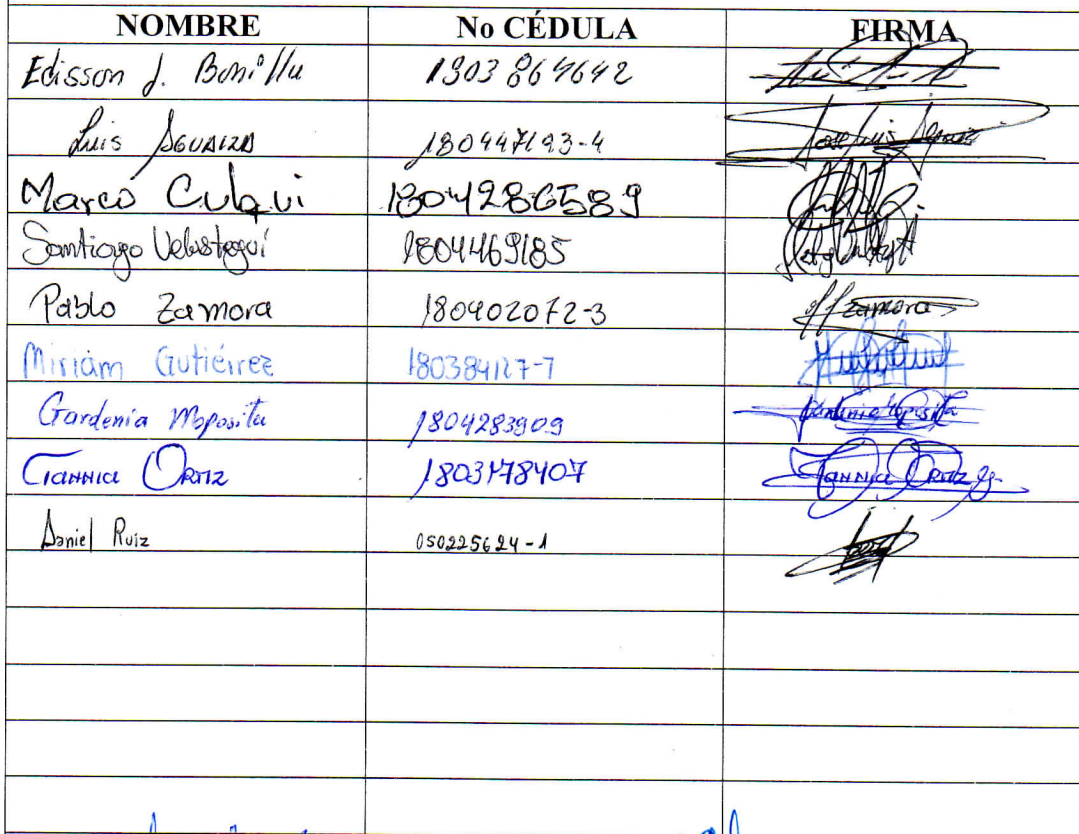 NOMBRE No CÉDULA FIRMA
Edisson J. Bonilla 1803864642
Luis Aguaiza 180447193-4 Jose Luis Aguaiza
Marco Culqui 1804286589
Santiago Velastegui 1804469185
Pablo Zamora 180402072-3 Zamora
Miriam Gutiérrez 180384127-7
Gardenia Moposita 1804283909 Gardenia Moposita
Tannia Ortiz 1803178407 Tannia Ortiz
Daniel Ruiz 050225624-1